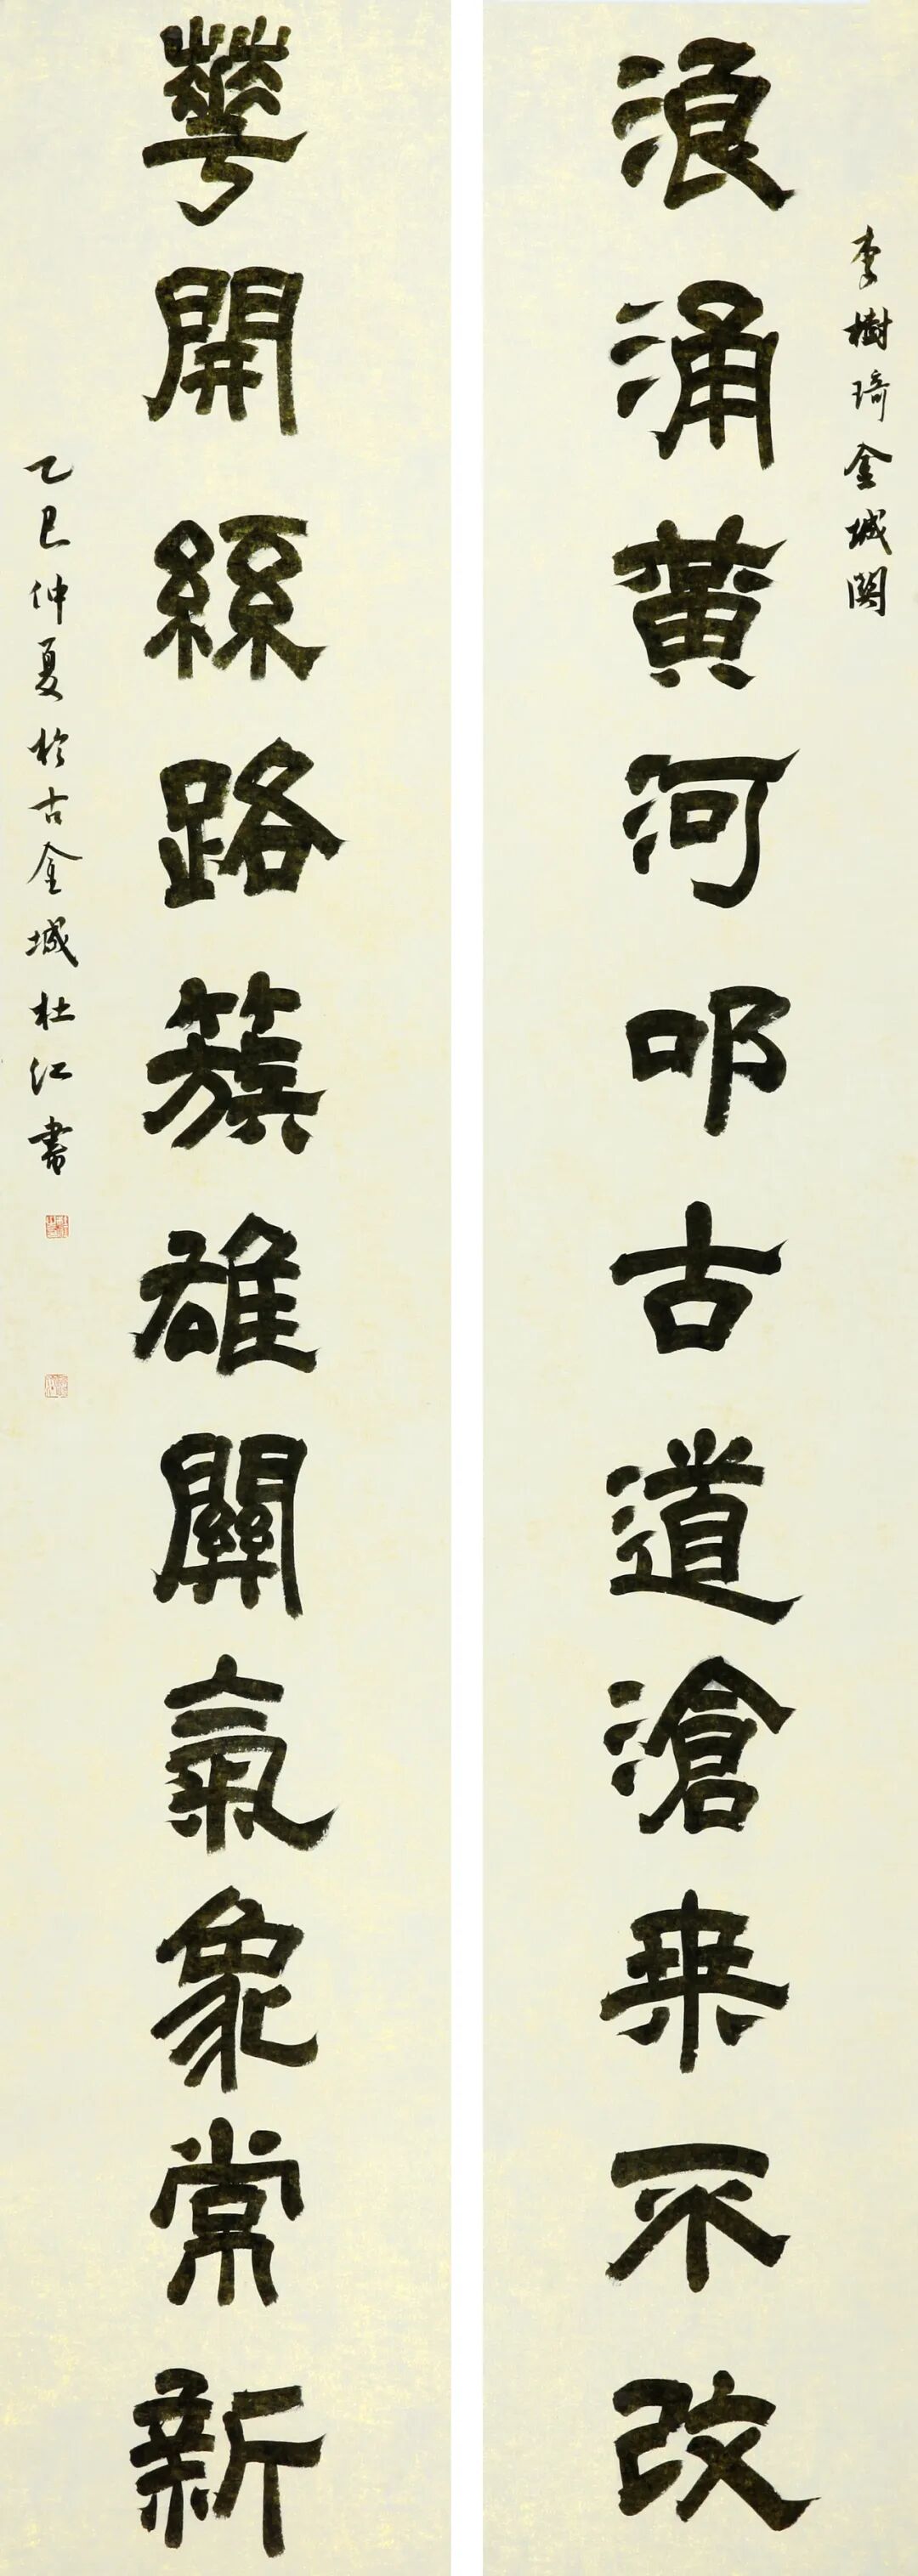 李樹琦金城關
浪涌黃河叩古道滄桒不改
華開絲路簇雄關氣象常新
乙巳仲夏於古金城杜江書